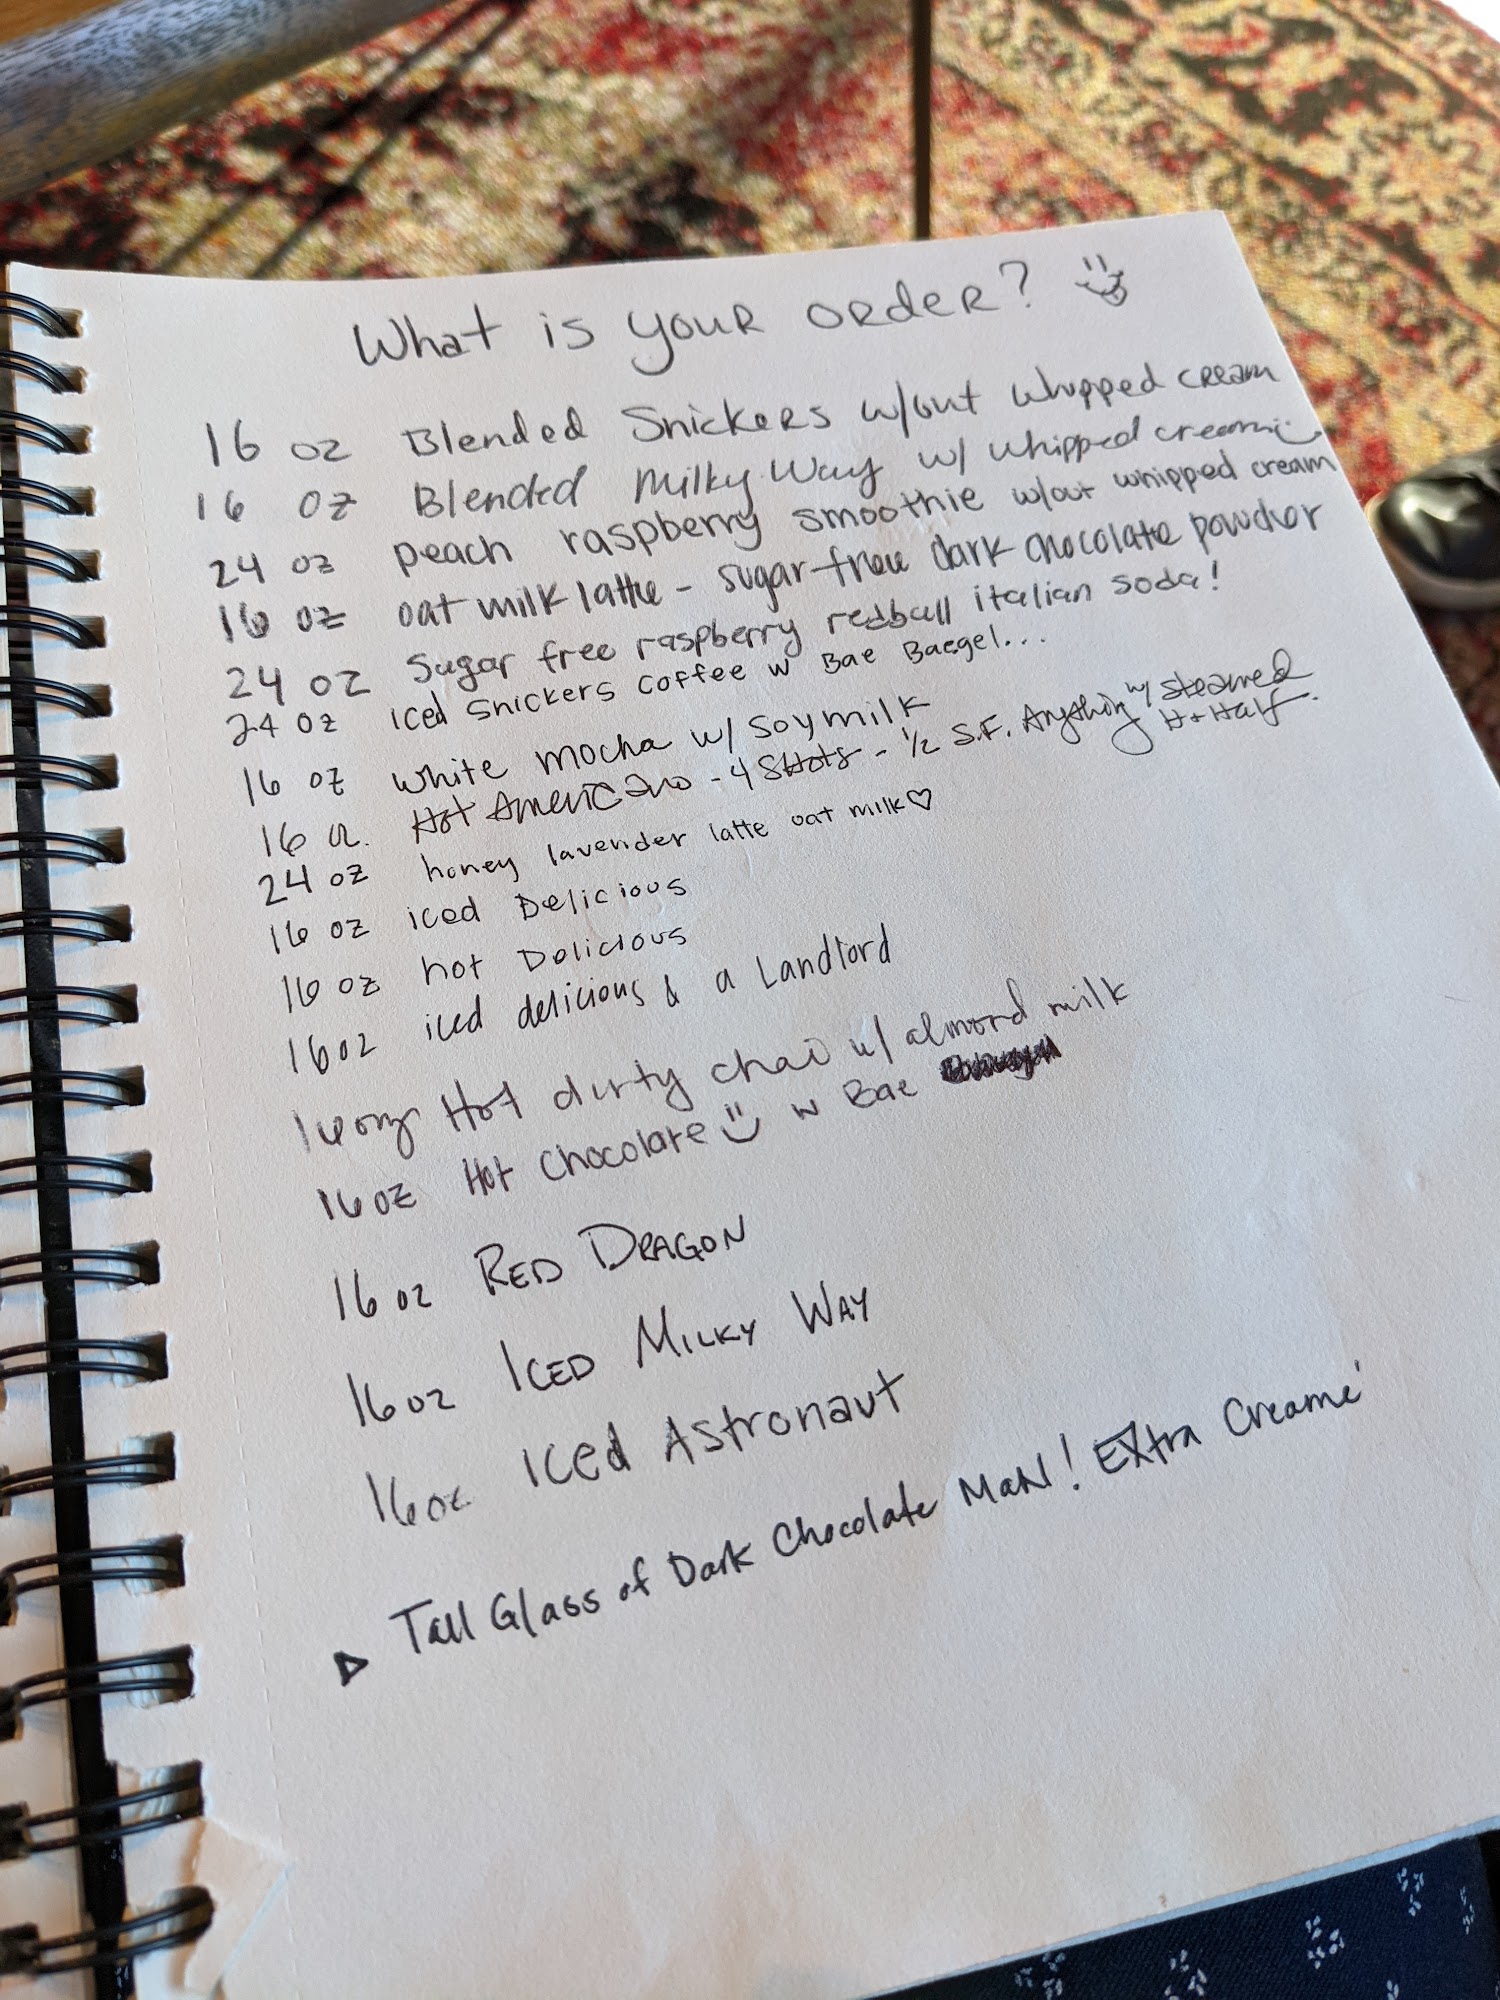 What is your order?
16 oz Blended Snickers w/out whipped cream
16 oz Blended Milky Way w/ whipped cream
24 oz peach raspberry smoothie w/out whipped cream
16 oz oat milk latte - sugar-free dark chocolate powder
24 oz Sugar free raspberry redbull italian soda!
24 oz iced snickers coffee w Bae Baegel...
16 oz white mocha w/ soymilk
16 oz. Hot Americano - 4 Shots - 1/2 S.F. Anything w/ steamed H + Half.
24 oz honey lavender latte oat milk♡
16 oz iced Delicious
16 oz hot Delicious
16 oz iced delicious & a Landlord
16 oz Hot dirty chai w/ almond milk
16 oz Hot Chocolate w Bae
16 oz RED DRAGON
16 oz ICED MILKY WAY
16 oz Iced Astronaut
Tall Glass of Dark Chocolate MaN! EXtra Creame'